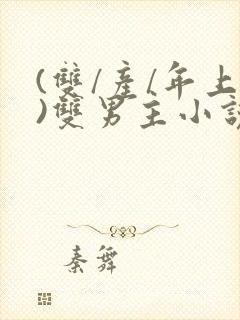 (雙/産/年上
)雙男主小說
秦舞